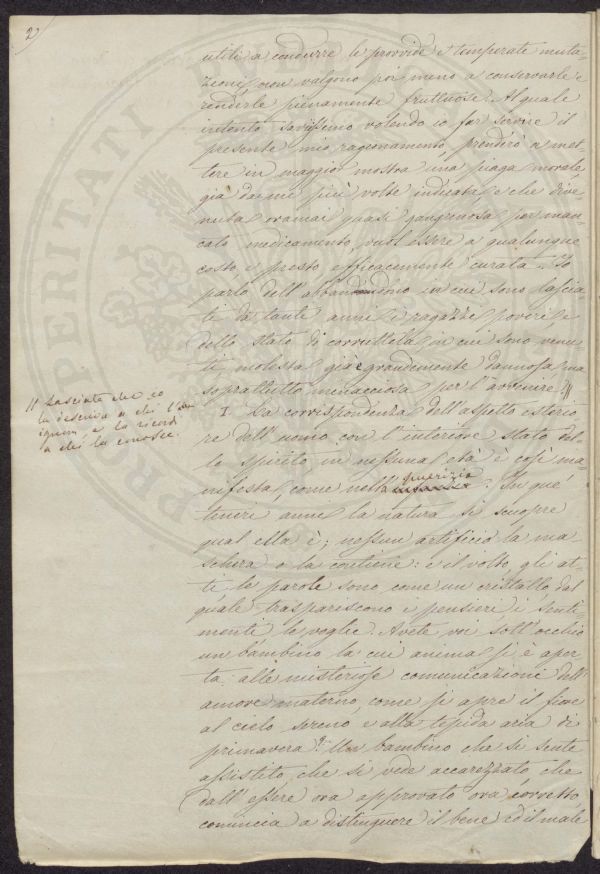 2)
utili a condurre le provvide e temperate muta-
zioni, non valgono poi meno a conservarle e
renderle pienamente fruttuose. Al quale
intento savissimo volendo io far servire il
presente mio ragionamento, prenderò a met-
tere in maggior mostra una piaga morale
già da me più volte indicata, e che dive-
nuta oramai quasi gangrenosa per man-
cato medicamento, vuol essere a qualunque
costo, e presto, efficacemente curata. Io
parlo dell'abbandono in cui sono lascia-
ti da tanti anni i ragazzi poveri e
dello stato di corruttela in cui sono venu-
ti, molesta già e grandemente dannosa, ma
soprattutto minacciosa per l'avvenire. //
// Lasciate che io
la descriva a chi l'
ignora e la ricordi
a chi la conosce.
I. La corrispondenza dell'aspetto esterio-
re dell'uomo con l'interiore stato del-
lo spirito in nessuna età è così ma-
nifesta, come nella puerizia. In que'
teneri anni la natura si scuopre
qual ella è; nessun artificio la ma-
schera o la contiene: e il volto, gli at-
ti, le parole sono come un cristallo dal
quale traspariscono i pensieri i senti-
menti le voglie. Avete voi sott'occhio
un bambino la cui anima si è aper-
ta alle misteriose comunicazioni dell'
amore materno, come si apre il fiore
al cielo sereno e alla tepida aria di
primavera? Un bambino che si sente
assistito, che si vede accarezzato, che
dall'essere ora approvato ora corretto
comincia a distinguere il bene ed il male
PROSPERITATI